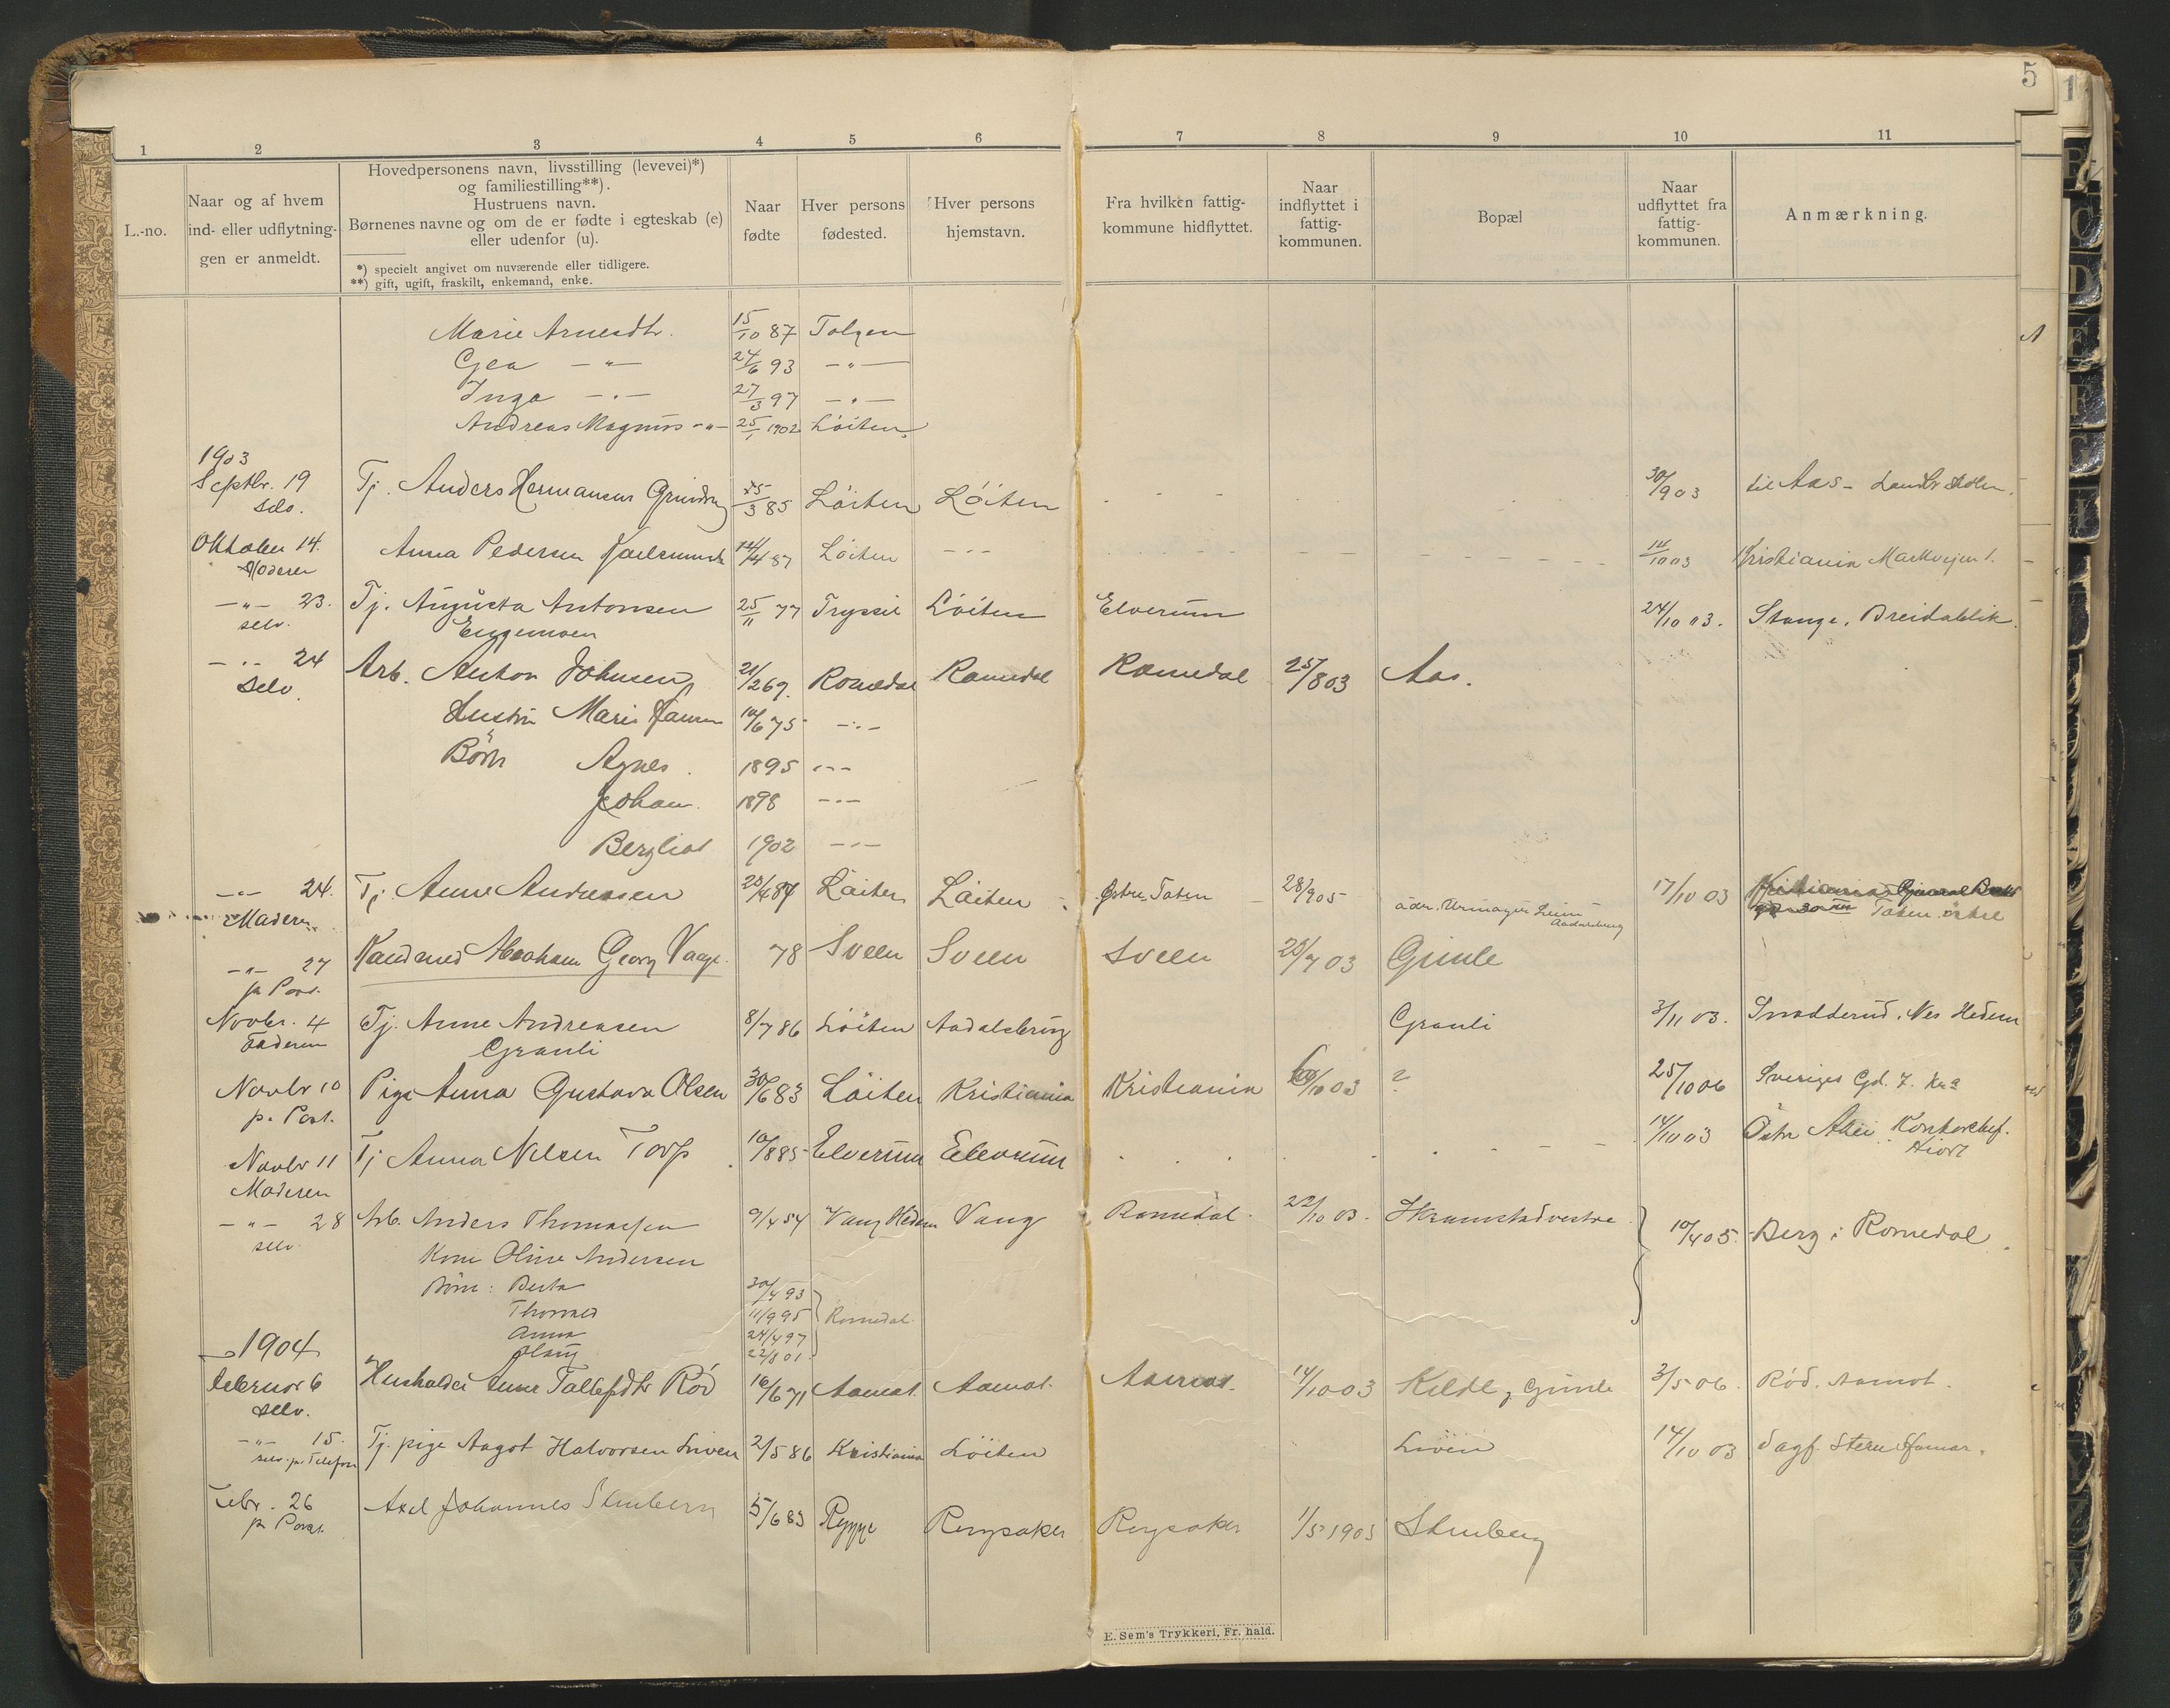 5
1 2 3 4 5 6 7 8 9 10 11
L.-no.
Naar og af hvem
ind- eller udflytnin-
gen er anmeldt.
Hovedpersonens navn, livsstilling (levevei)*)
og familiestilling**).
Hustruens navn.
Børnenes navne og om de er fødte i egteskab (e)
eller udenfor (u).
*) specielt angivet om nuværende eller tidligere.
**) gift, ugift, fraskilt, enkemand, enke.
Naar
fødte
Hver persons
fødested.
Hver persons
hjemstavn.
Fra hvilken fattig-
kommune hidflyttet.
Naar
indflyttet i
fattig-
kommunen.
Bopæl
Naar
udflyttet fra
fattig-
kommunen.
Anmærkning.
Marie Arnesdtr. 15/10 87 Tolgen
Gea -"- 24/6 93 -"-
Inga -"- 27/3 97 -"-
Andreas Magnus -"- 25/1 1902 Löiten
1903
Septbr. 19 Tj. Anders Hermansen 25/3 85 Löiten Löiten 30/9 03 til Aas -
selv.
Oktober 14. Anna Pedersen 14/4 87 Löiten -"- 14/10 03 Kristiania Markvejen 1.
Moderen
-"- 23. Tj. Augusta Antonsen 25/11 77 Trysil Löiten Elverum 24/10 03. Stange, Breidablik.
selv. Engemoen
-"- 24 Arb. Anton Johnsen 21/2 69. Romedal Romedal Romedal 25/8 03 Aas.
selv.
Hustru Marie Jansen 10/6 75 -"-
Börn Agnes. 1895 -"-
Johan. 1898 -"-
Bergliot 1902 -"-
-"- 24. Tj. Anne Andreassen 23/4 87 Löiten Löiten Østre Toten 28/9 05 adr. Urmager 17/10 03 Kristiania
Moderen Aadalsbrug Toten östre
-"- 27 Kand med Abraham Georg Vaage. 78 Sveen Sveen Sveen 20/7 03 Gimle
pr. Post.
Novbr. 4 Tj. Anne Andreasen 8/7 86 Löiten Aadalsbrug Granli 3/11 03. Snodderud, Nes Hedem
Faderen Granli
Novbr 10 Pige Anna Gustava Olsen 30/6 83 Löiten Kristiania Kristiania /10 03 ? 25/10 06 Sveriges Gd. 7. Kr.a
pr. Post.
Novbr 11 Tj Anna Nilsen Torp 10/8 85 Elverum Elverum 14/10 03 Östre Kontorchef.
Moderen Hiort
-"- 28 Arb. Anders Thomassen 9/4 54 Vang Hedem Vang Romedal. 22/10 03. Skramstadvestre 10/4 05. Berg i Romedal.
selv
Kone Oline Andersen
Börn: Berta 30/4 93
Thomas 11/9 95 Romedal
Anna 24/4 97
Olaug 22/8 01
1904
Februar 6 Husholder Anne Tollefsdtr Röd 16/6 71 Aamot. Aamot. Aamot. 14/10 03 Kilde, Gimle 3/5 06. Röd. Aamot.
selv.
-"- 15. Tj. pige Aagot Halvorsen Löven 2/5 86 Kristiania Löiten Löven 14/10 03 Sagf. Steen Hamar.
selv. pr. Telefon
Febr. 26 Axel Johannes Stenberg 5/6 83 Rygge Ringsaker Ringsaker 1/5 1903 Stenberg
pr. Post.
E. Sem's Trykkeri, Fr. hald.